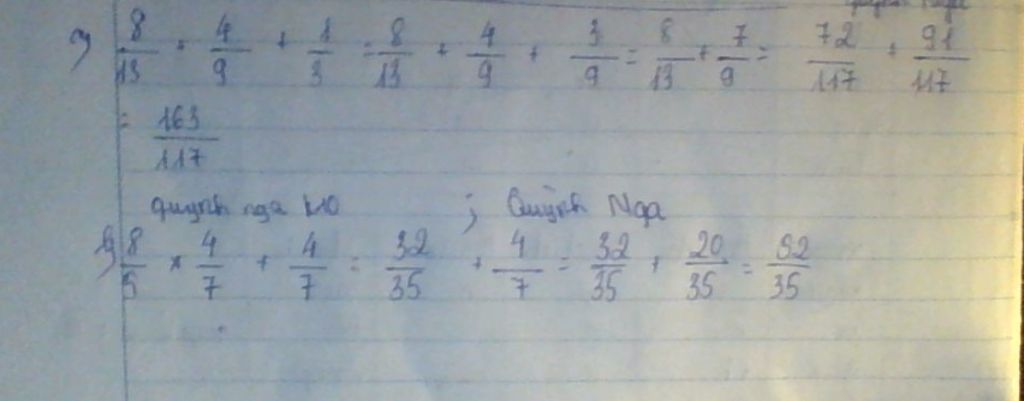 8/13 + 4/9 + 1/3 = 8/13 + 4/9 + 3/9 = 8/13 + 7/9 = 72/117 + 91/117
= 163/117
quỳnh nga ; Quỳnh Nga
b) 8/5 × 4/7 + 4/7 = 32/35 + 4/7 = 32/35 + 20/35 = 52/35